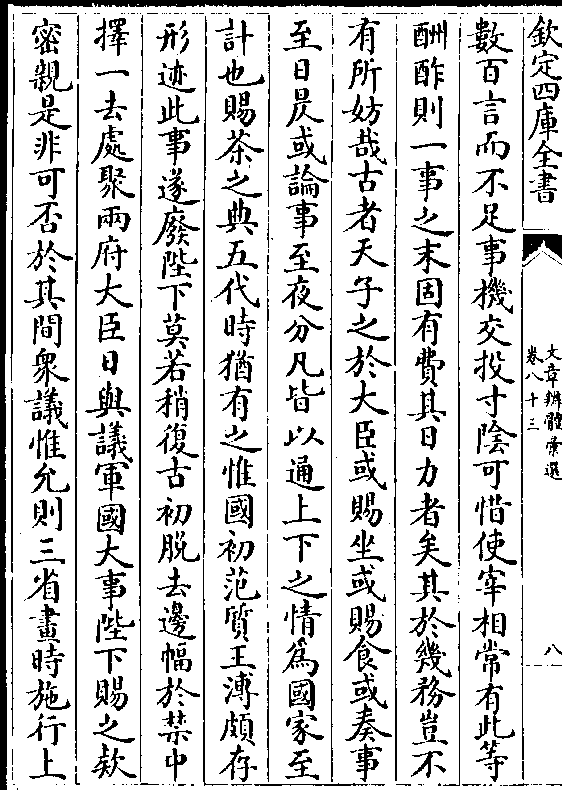 欽定四庫全書
文章辨體彙選
卷八十三
八
數百言而不足事機交投寸陰可惜使宰相常有此等
酬酢則一事之末固有費其日力者矣其於幾務豈不
有所妨哉古者天子之於大臣或賜坐或賜食或奏事
至日昃或論事至夜分凡皆以通上下之情為國家至
計也賜茶之典五代時猶有之惟國初范質王溥頗存
形迹此事遂廢陛下莫若稍復古初脱去邊幅於禁中
擇一去處聚兩府大臣日與議軍國大事陛下賜之欵
密親是非可否於其間衆議惟允則三省畫時施行上